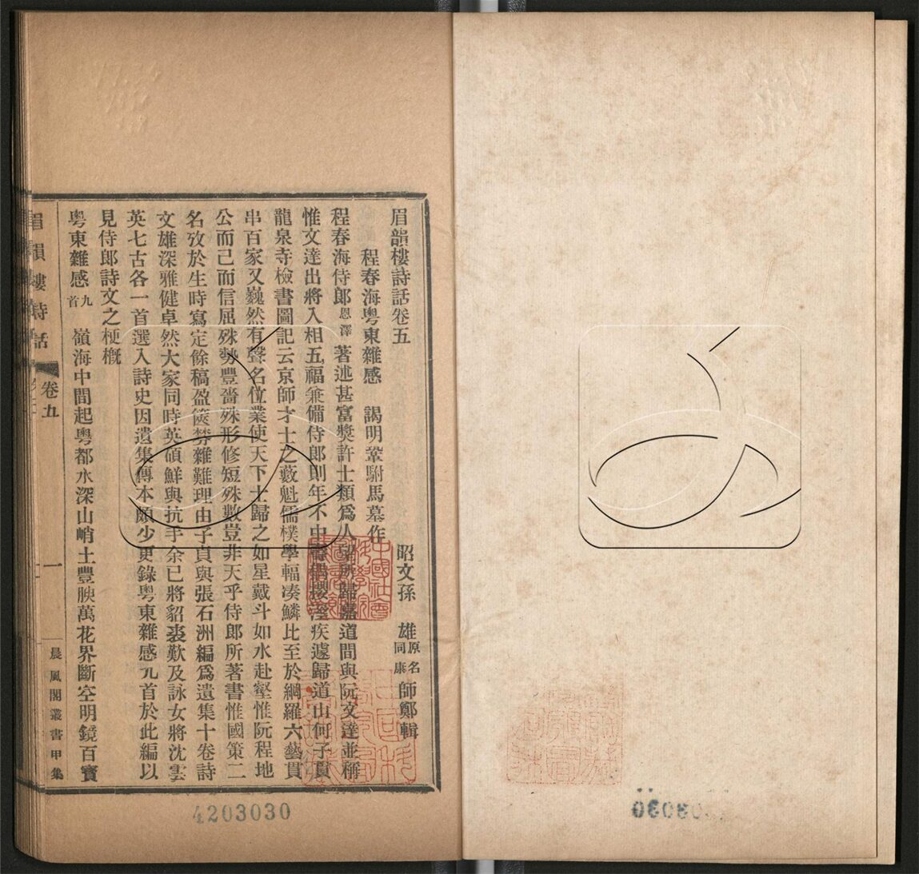 眉韻樓詩話卷五
昭文孫 雄原名同康師鄭輯
程春海粤東雜感 謁明鞏駙馬墓作
程春海侍郎恩澤著述甚富獎許士類爲人望所歸嘉道間與阮文達並稱
惟文達出將入相五福兼備侍郎則年不中壽 疾遽歸道山何子貞
龍泉寺檢書圖記云京師才士之藪魁儒樸學輻湊鱗比至於綱羅六藝貫
串百家又巍然有聲名位業使天下士歸之如星戴斗如水赴壑惟阮程地
公而已而信屈殊勢豐嗇殊形修短殊數豈非天乎侍郎所著書惟國策二
名攷於生時寫定餘稿盈篋棼雜難理由子貞與張石洲編爲遺集十卷詩
文雄深雅健卓然大家同時英碩鮮與抗手余已將貂裘歎及詠女將沈雲
英七古各一首選入詩史因遺集傳本頗少更錄粤東雜感九首於此編以
見侍郎詩文之梗概
粤東雜感九首 嶺海中間起粤都水深山峭土豐腴萬花界斷空明鏡百寶
眉韻樓詩話 卷五 一 晨風閣叢書甲集
4203030